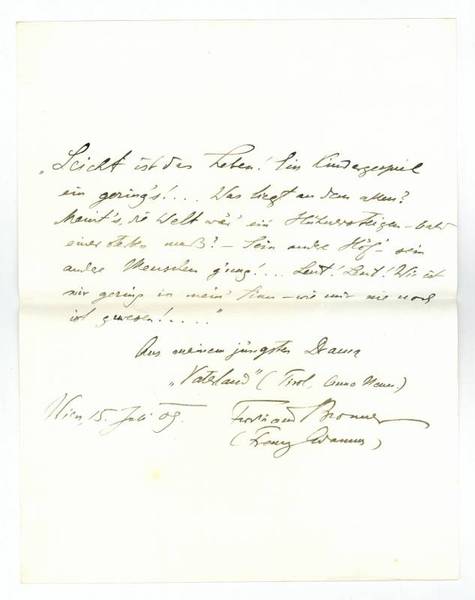 „Leicht ist das Leben! Ein Kinderspiel
ein gering's!.... Was liegt an dem allen?
Meint's, die Welt wär' ein Hühnersteigen –
eines
andre Menschen g'nug!... Leut! Leut! Wie ist
mir gering in mein' Sinn – wie mir nie noch
ist gewesen!....."
Aus meinem jüngsten Drama
„Vaterland" (Tirol, Anno Neun)
Wien, 15. Juli 09. Ferdinand Bronner
(Franz Adamus)